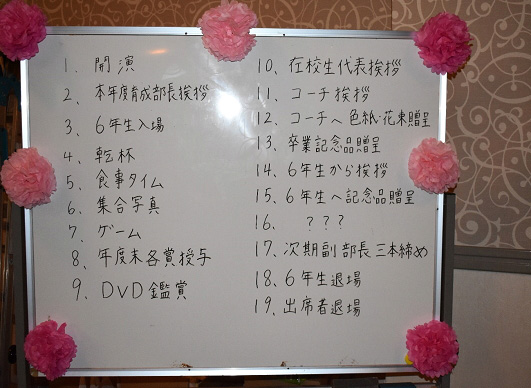 1、開演
2、本年度育成部長挨拶
3、6年生入場
4、乾杯
5、食事タイム
6、集合写真
7、ゲーム
8、年度末各賞授与
9、DVD鑑賞
10、在校生代表挨拶
11、コーチ挨拶
12、コーチへ色紙・花束贈呈
13、卒業記念品贈呈
14、6年生から挨拶
15、6年生へ記念品贈呈
16、???
17、次期副部長三本締め
18、6年生退場
19、出席者退場